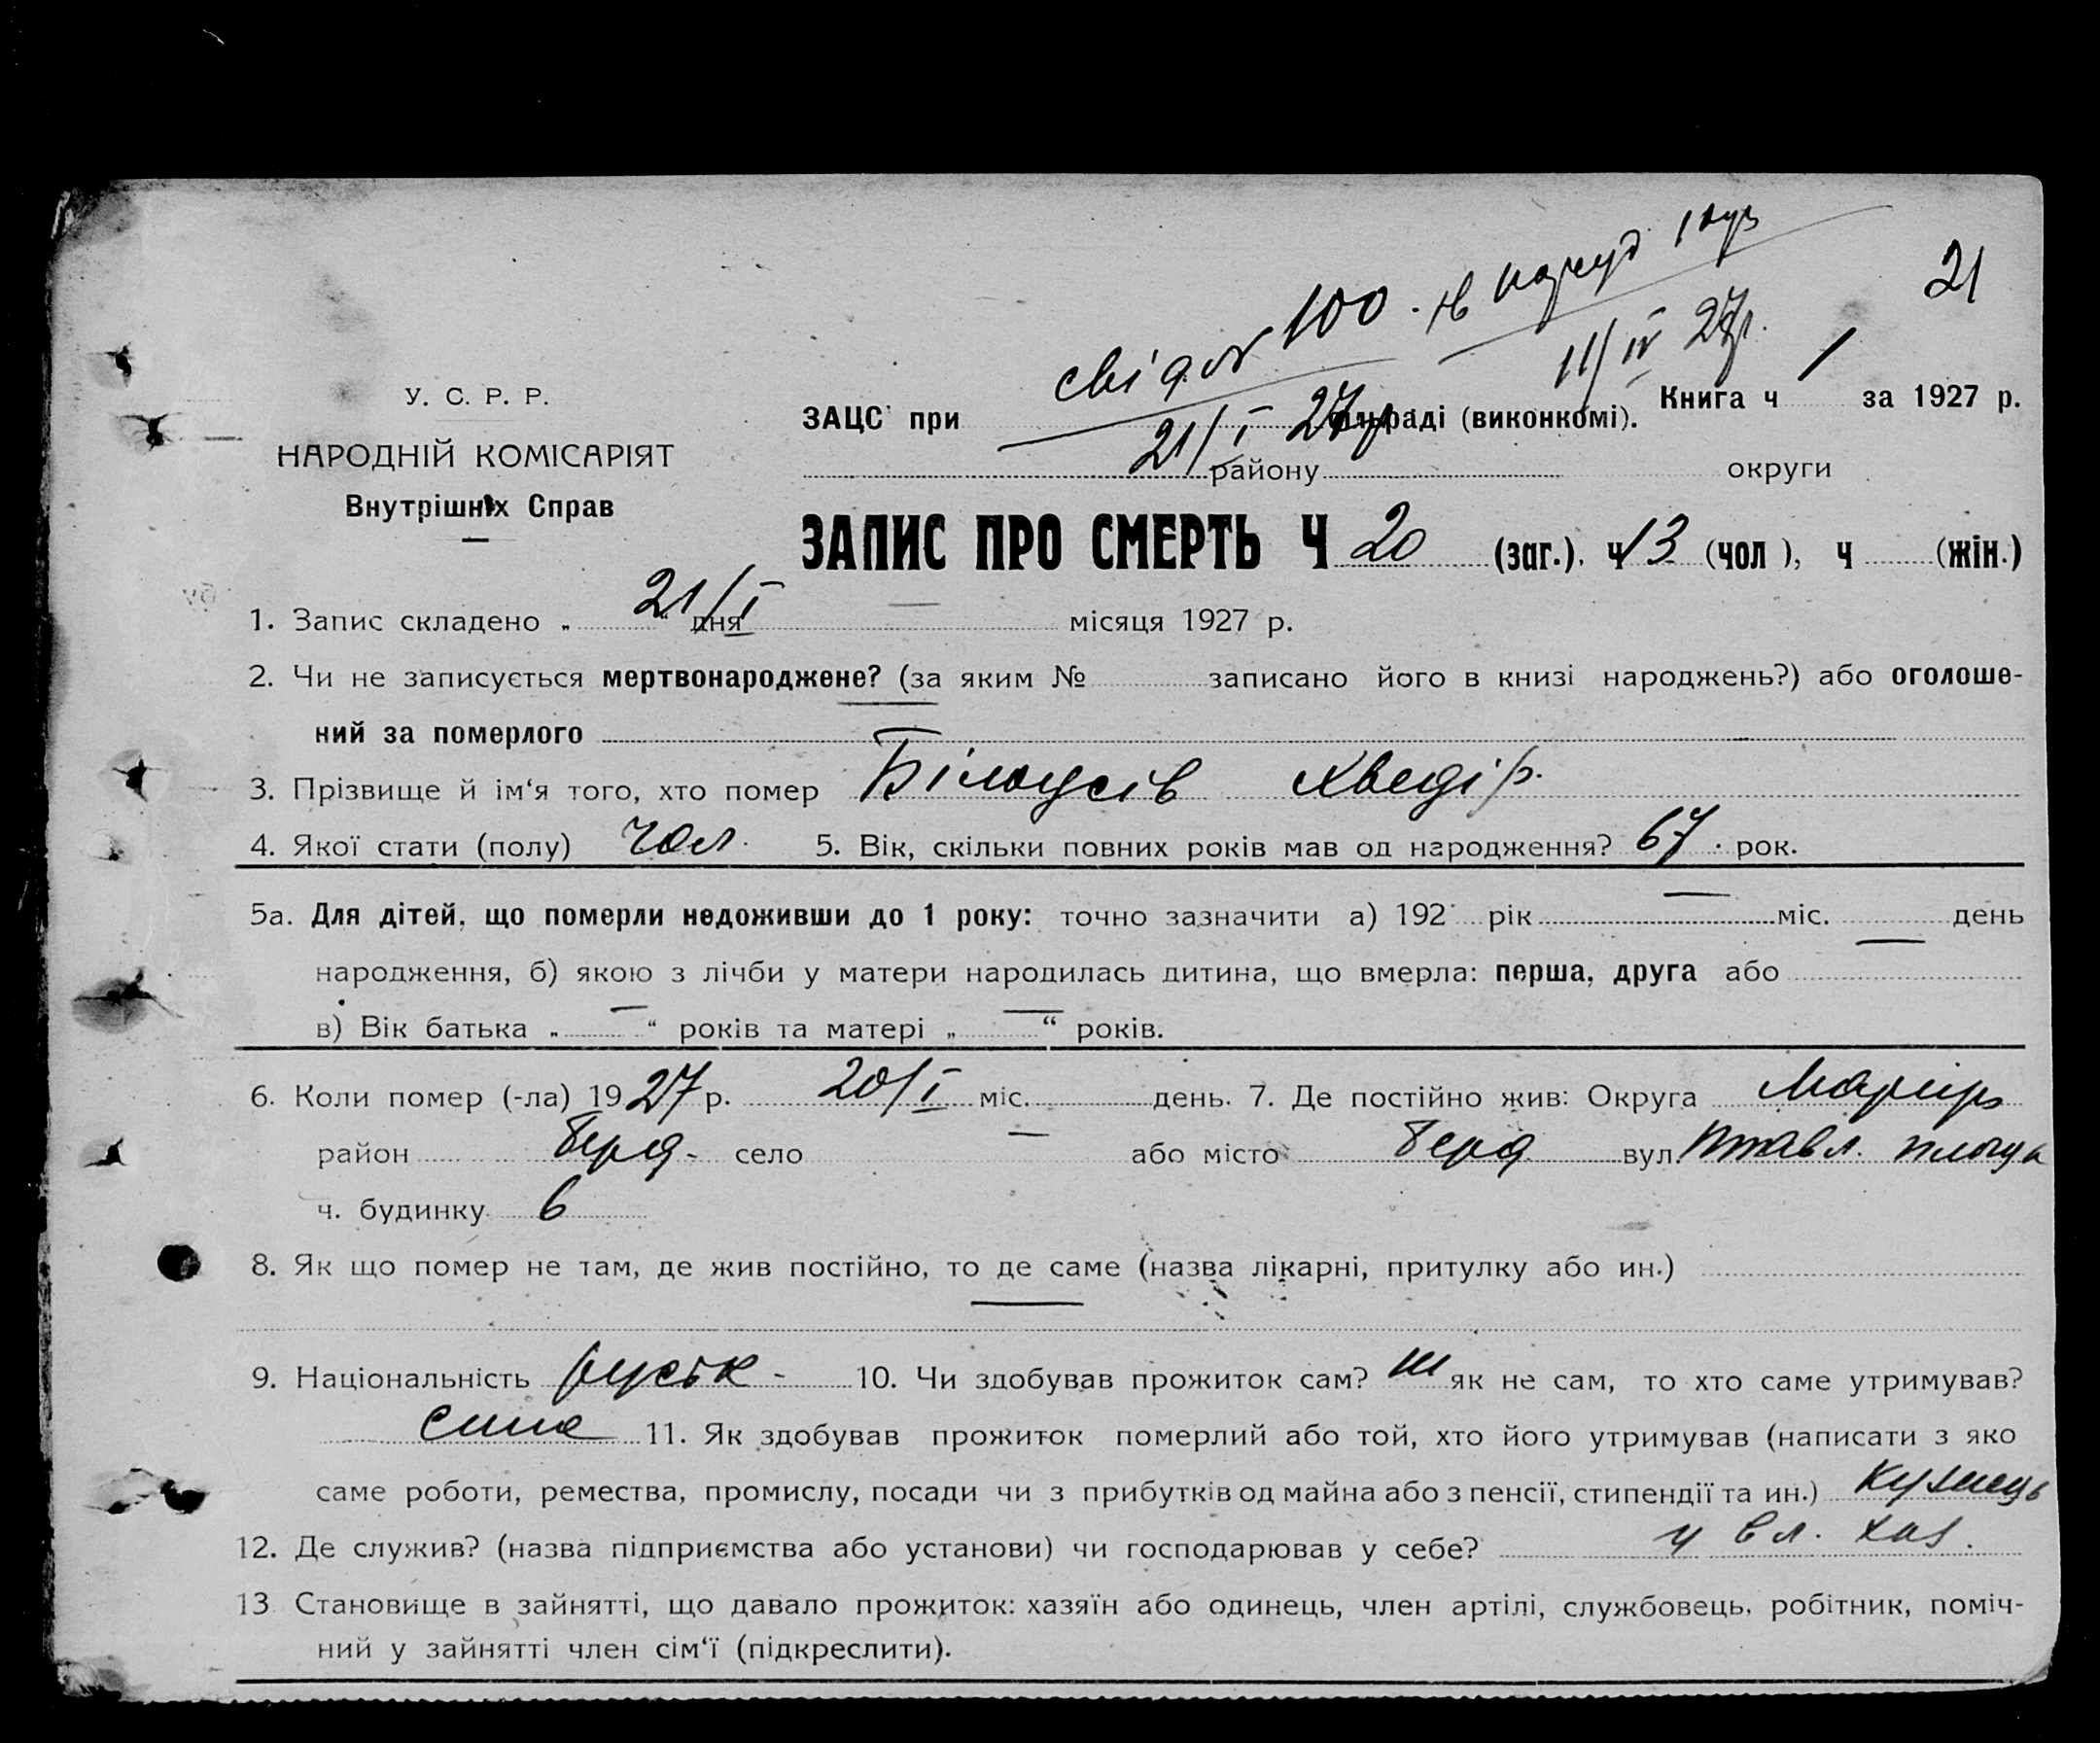 21
100
11/IV 27р.
свід
21/I 27р
У. С. Р. Р.
НАРОДНІЙ КОМІСАРІЯТ
Внутрішніх Справ
Книга ч 1 за 1927 р.
ЗАЦС при раді (виконкомі).
району округи
ЗАПИС ПРО СМЕРТЬ Ч 20 (заг.), ч 13 (чол ), ч (жін.)
1. Запис складено „ 21/I “ дня місяця 1927 р.
2. Чи не записується мертвонароджене? (за яким № записано його в книзі народжень?) або оголоше-
ний за померлого
3. Прізвище й ім‘я того, хто помер Білоусів Хведір.
4. Якої стати (полу) чол. 5. Вік, скільки повних років мав од народження? 67 рок.
5а. Для дітей, що померли недоживши до 1 року: точно зазначити а) 192 рік — міс. — день
народження, б) якою з лічби у матери народилась дитина, що вмерла: перша, друга або
в) Вік батька „ — “ років та матері „ — “ років.
6. Коли помер (-ла) 1927 р. 20/I міс. день. 7. Де постійно жив: Округа Маріюп
район Берд- село — або місто Берд вул. площа
ч. будинку 6
8. Як що помер не там, де жив постійно, то де саме (назва лікарні, притулку або ин.)
—
9. Національність руськ - 10. Чи здобував прожиток сам? як не сам, то хто саме утримував?
сина 11. Як здобував прожиток померлий або той, хто його утримував (написати з яко
саме роботи, ремества, промислу, посади чи з прибутків од майна або з пенсії, стипендії та ин.) Кузнець
12. Де служив? (назва підприємства або установи) чи господарював у себе? у вл. хаз.
13 Становище в зайнятті, що давало прожиток: хазяїн або одинець, член артілі, службовець, робітник, поміч-
ний у зайнятті член сім‘ї (підкреслити).